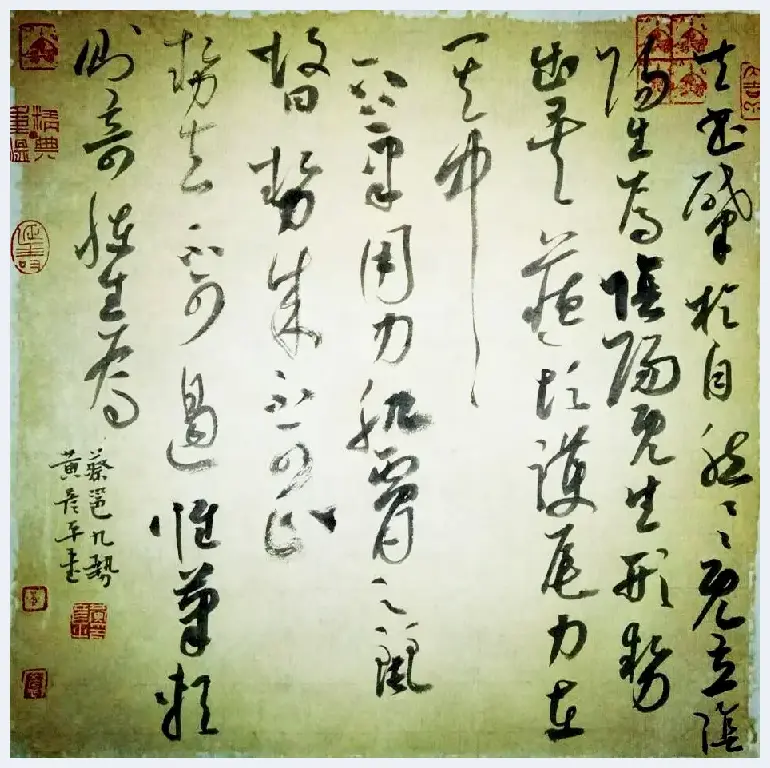 夫書肇於自然〻〻既立陰
陽生焉陰陽既生形勢
出矣藏頭護尾力在
其中
下筆用力肌膚之麗
故曰勢來不可止
勢去不可遏惟筆軟
則奇怪生焉
蔡邕九勢
黃彥平書